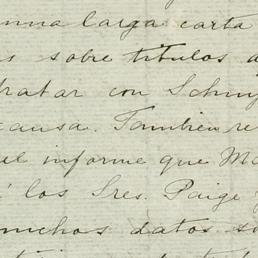 una larga carta
sobre titulos
tratar con
causa. Tambien re
el informe que
los Sres. Paige
muchos datos